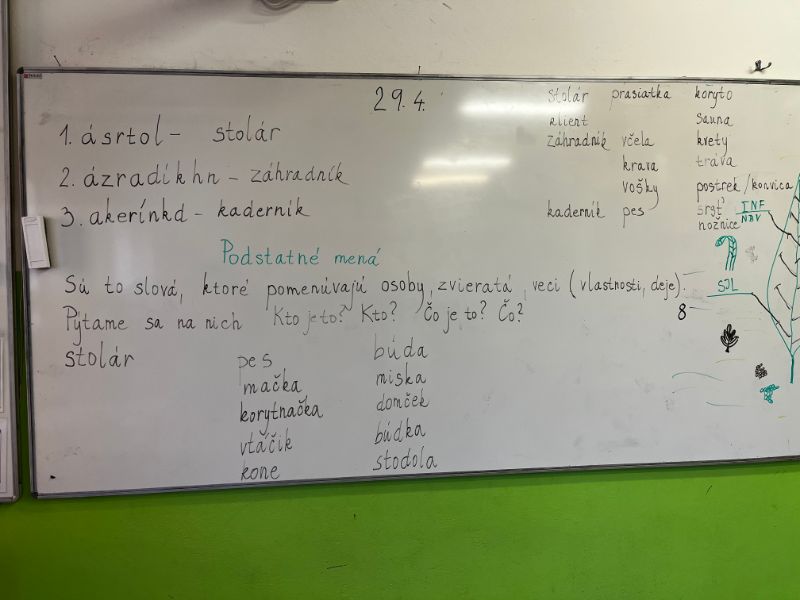 29.4.
1. ásrtol - stolár
2. ázradíkhn - záhradník
3. akerínkd - kaderník
Podstatné mená
Sú to slová, ktoré pomenúvajú osoby, zvieratá, veci (vlastnosti, deje).
Pýtame sa na nich Kto je to? Kto? Čo je to? Čo?
stolár pes búda
mačka miska
korytnačka domček
vtáčik búdka
kone stodola
stolár prasiatka koryto
klient sauna
záhradník včela kvety
krava tráva
vošky postrek/konvica
kaderník pes srsť
nožnice
INF
NBV
SJL
8